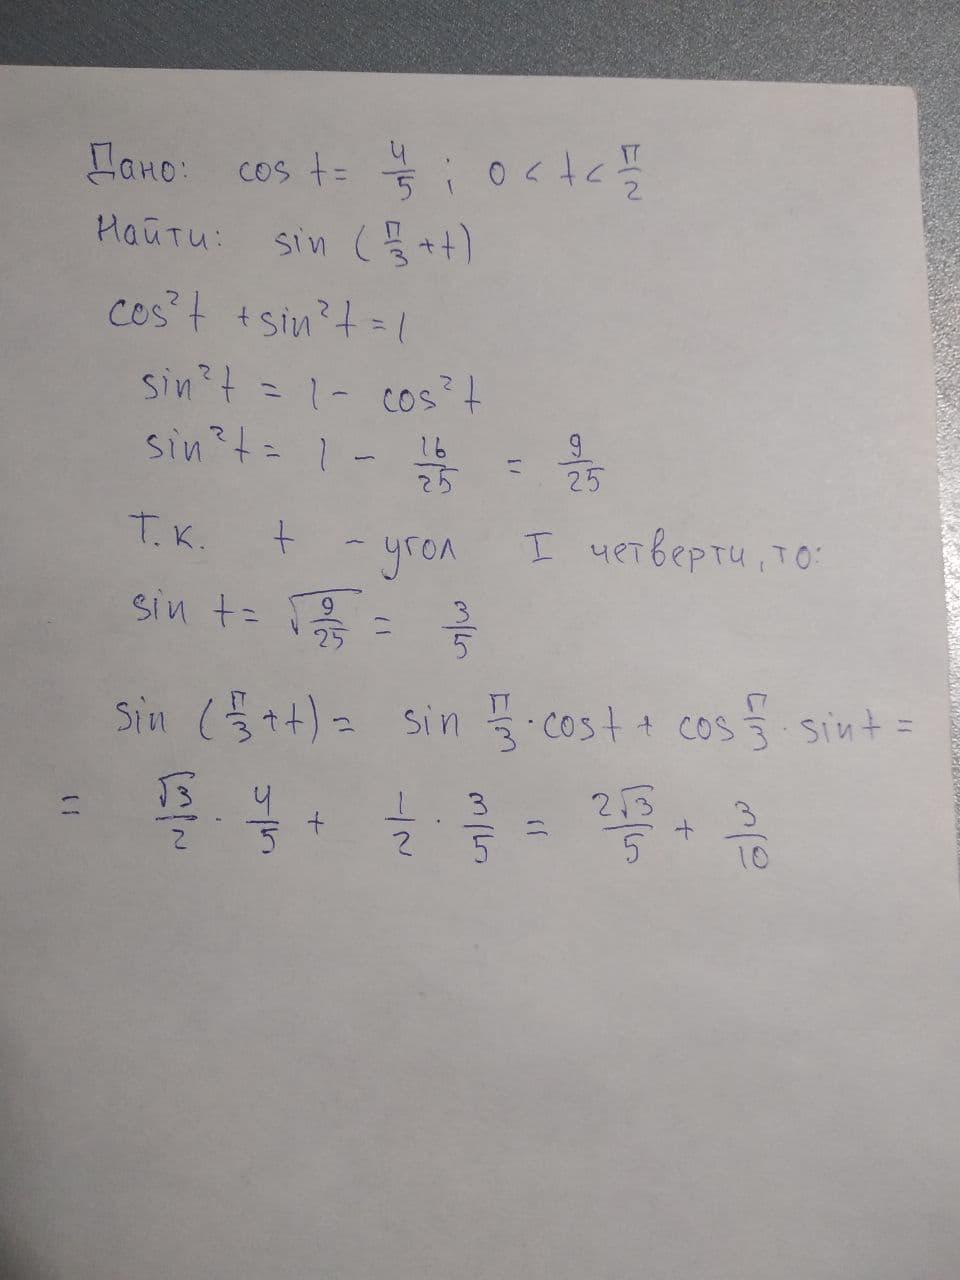 Дано: cos t = 4/5 ; 0 < t < π/2
Найти: sin (π/3 + t)
cos²t + sin²t = 1
sin²t = 1 - cos²t
sin²t = 1 - 16/25 = 9/25
Т.к. t - угол I четверти, то:
sin t = √(9/25) = 3/5
sin (π/3 + t) = sin π/3 · cos t + cos π/3 · sin t =
= √3/2 · 4/5 + 1/2 · 3/5 = 2√3/5 + 3/10